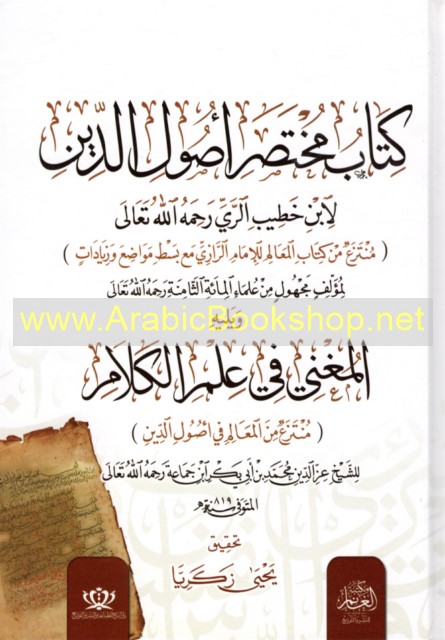 كِتَابُ مُخْتَصَرِ أُصُولِ الدِّينِ
لِابْنِ خَطِيبِ الرَّيِّ رَحِمَهُ اللهُ تَعَالَى
( مُنْتَزَعٌ مِنْ كِتَابِ المَعَالِمِ لِلإِمَامِ الرَّازِيِّ مَعَ بَسْطِ مَوَاضِعَ وَزِيَادَاتٍ )
لِمُؤَلِّفٍ مَجْهُولٍ مِنْ عُلَمَاءِ المِائَةِ الثَّامِنَةِ رَحِمَهُ اللهُ تَعَالَى
وَيَلِيهِ
www.ArabicBookshop.net
المُغْنِي فِي عِلْمِ الكَلَامِ
( مُنْتَزَعٌ مِنَ المَعَالِمِ فِي أُصُولِ الدِّينِ )
لِلشَّيْخِ عِزِّ الدِّينِ مُحَمَّدِ بْنِ أَبِي بَكْرِ ابْنِ جَمَاعَةَ رَحِمَهُ اللهُ تَعَالَى
المتوفى سنة ٨١٩ هـ
تحقيق
يَحْيَى زَكَرِيَّا